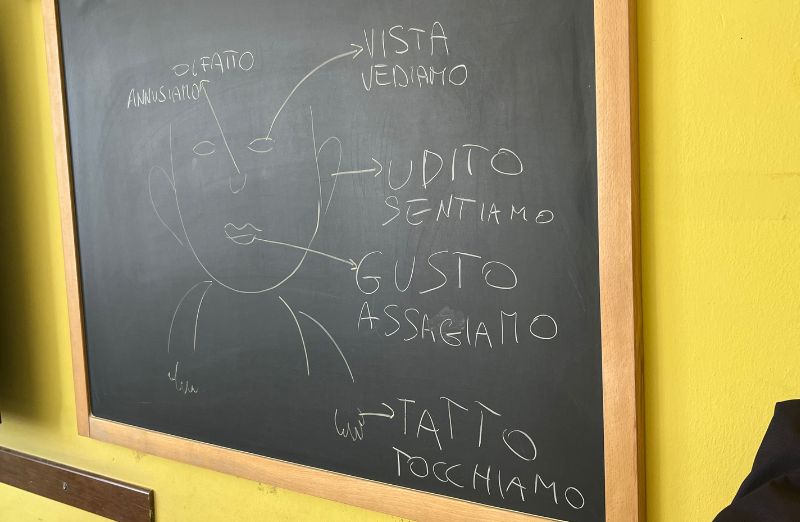 OLFATTO
ANNUSIAMO
VISTA
VEDIAMO
UDITO
SENTIAMO
GUSTO
ASSAGIAMO
TATTO
TOCCHIAMO